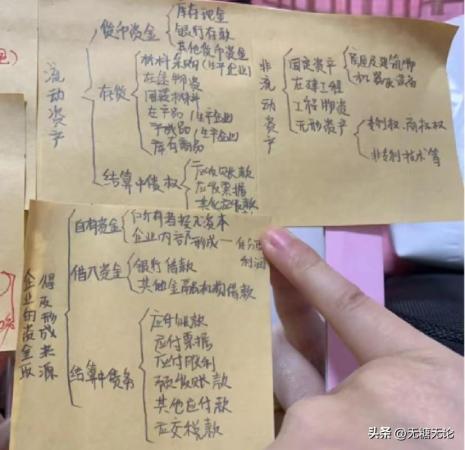 流动资产
货币资金
库存现金
银行存款
其他货币资金
存货
材料采购(生产企业)
在途物资
周转材料
在产品(生产企业)
产成品(生产企业)
库存商品
结算中债权
应收账款
应收票据
其他应收款
非流动资产
固定资产
房屋及建筑物
机器及设备
在建工程
工程物资
无形资产
专利权、商标权
非专利技术等
企业的资金取得及形成来源
自有资金
所有者投入资本
企业内部形成一
利润
借入资金
银行借款
其他金融机构借款
结算中债务
应付账款
应付票据
应付股利
预收账款
其他应付款
应交税款
头条 @无糖无论